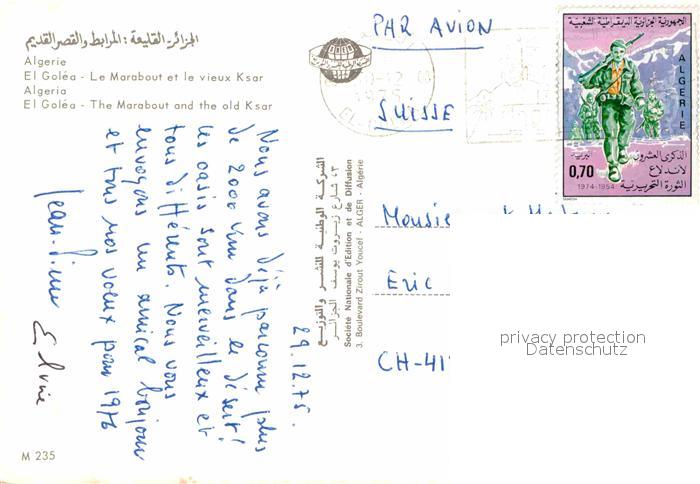 الجزائر - القليعة : المرابط والقصر القديم
Algerie
El Goléa - Le Marabout et le vieux Ksar
Algeria
El Goléa - The Marabout and the old Ksar
29.12.75.
Nous avons déjà parcouru plus
de 2000 km dans le désert!
Les oasis sont merveilleux et
tous différents. Nous vous
envoyons un amical bonjour
et tous nos voeux pour 1976
M 235
الشركة الوطنية للنشر والتوزيع
٣، شارع زيروت يوسف الجزائر
Société Nationale d'Edition et de Diffusion
3, Boulevard Zirout Youcef - ALGER - Algérie
PAR AVION
SUISSE
Eric
CH-41
الجمهورية الجزائرية الديمقراطية الشعبية
ALGERIE
الذكرى العشرون
لاندلاع
الثورة التحريرية
البريد
0,70
1974-1954
privacy protection
Datenschutz